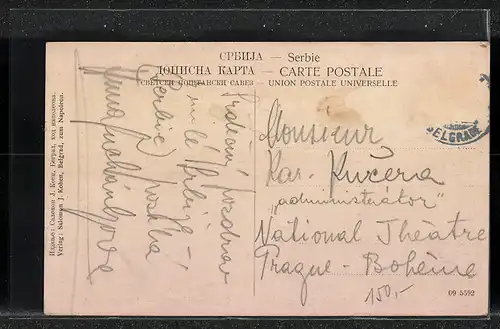 СРБИЈА — Serbie
ДОПИСНА КАРТА — CARTE POSTALE
СВЕТСКИ ПОШТАНСКИ САВЕЗ — UNION POSTALE UNIVERSELLE
Издање: Саломон Ј. Коен, Београд, код Наполеона.
Verlag: Salomon J. Kohen, Belgrad, zum Napoleon.
Srdečný pozdrav
milé
Serbie
posílá
Anna
BELGRADE
Monsieur
Kar. Kučera
„administrátor"
National Théâtre
Prague - Bohème
150,-
09 5592